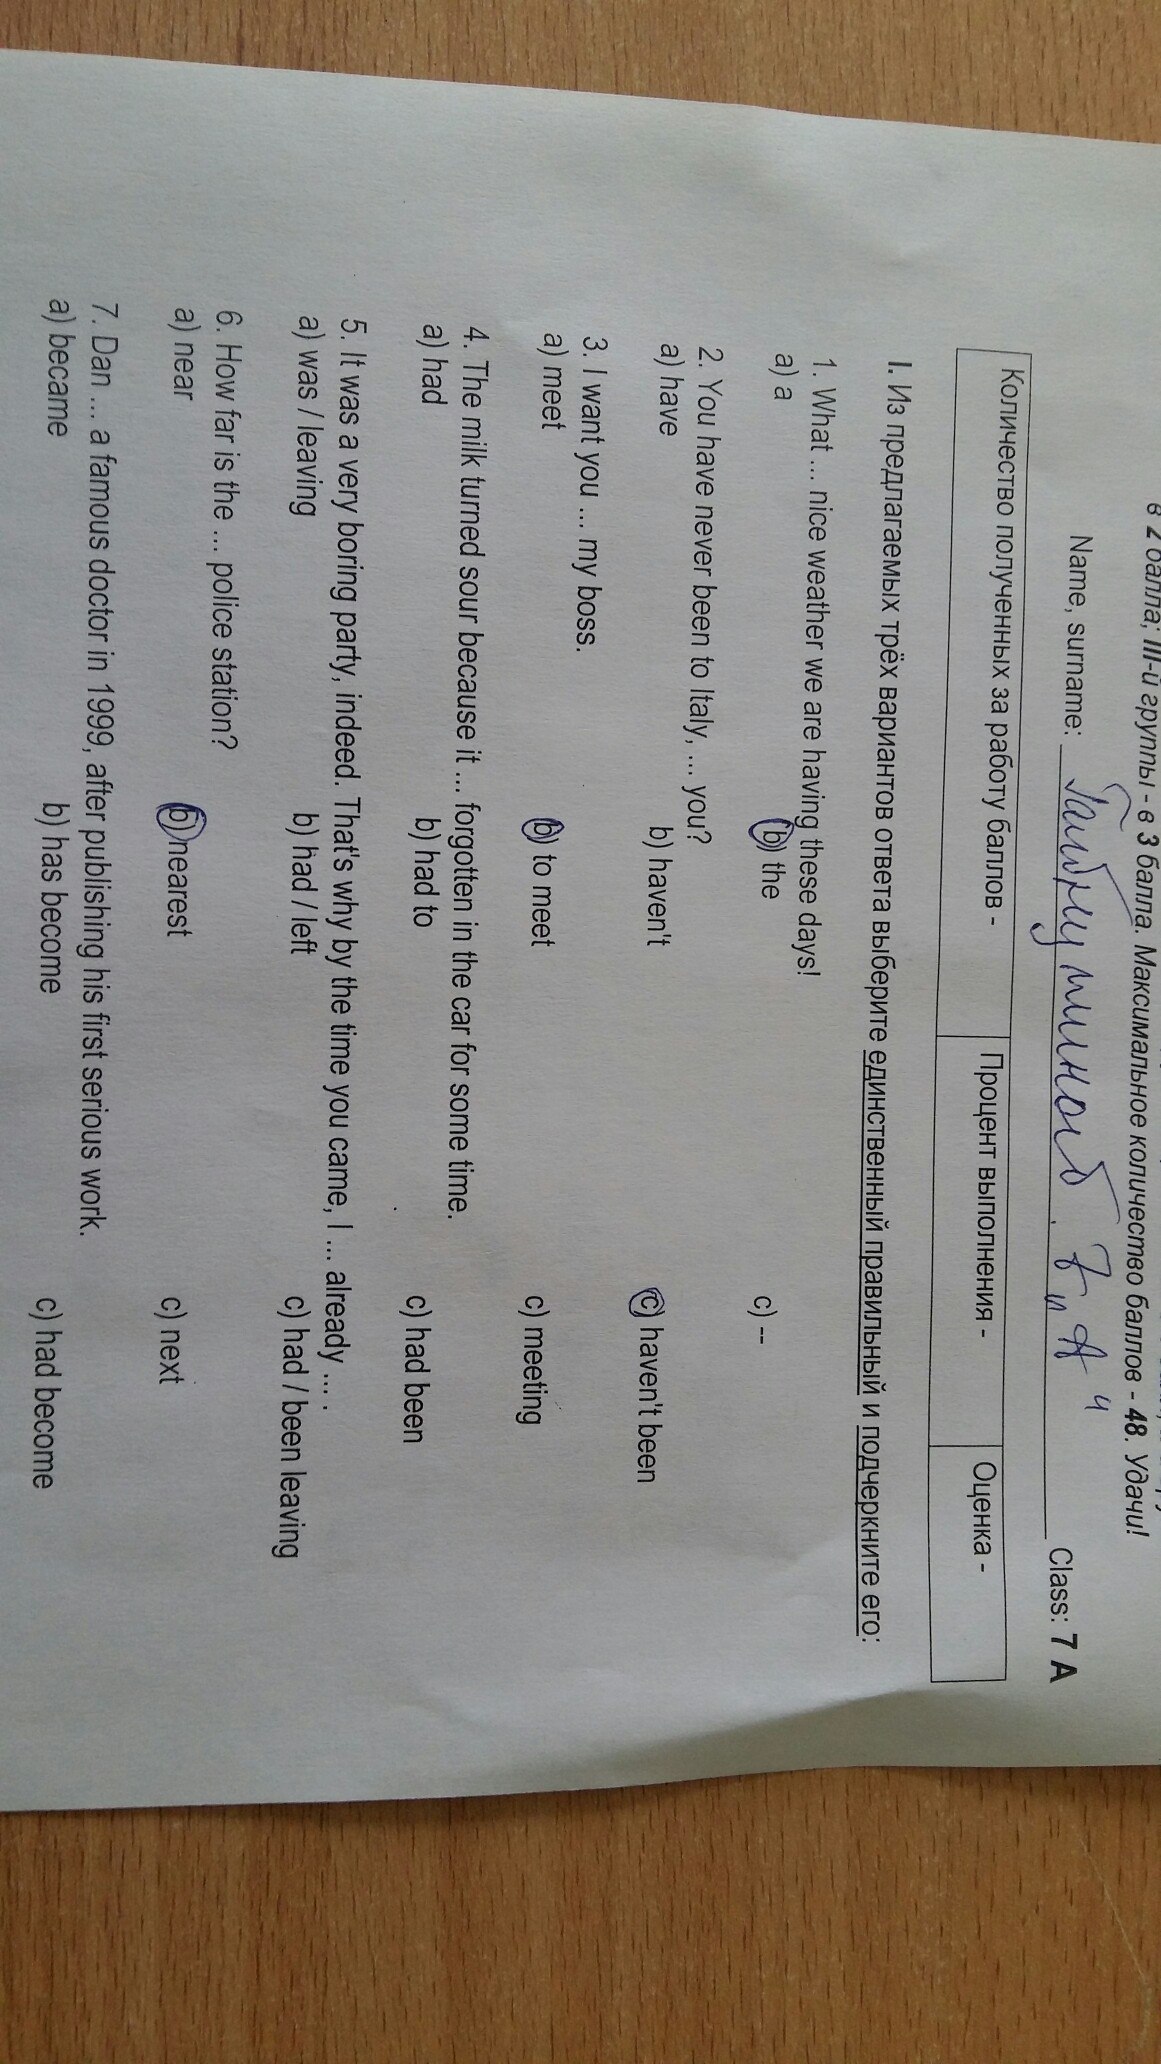 в 2 балла; III-й группы - в 3 балла. Максимальное количество баллов - 48. Удачи!
Name, surname: Class: 7 A
7 "А"
Количество полученных за работу баллов - Процент выполнения - Оценка -
I. Из предлагаемых трёх вариантов ответа выберите единственный правильный и подчеркните его:
1. What ... nice weather we are having these days!
a) a b) the c) --
2. You have never been to Italy, ... you?
a) have b) haven't c) haven't been
3. I want you ... my boss.
a) meet b) to meet c) meeting
4. The milk turned sour because it ... forgotten in the car for some time.
a) had b) had to c) had been
5. It was a very boring party, indeed. That's why by the time you came, I ... already ... .
a) was / leaving b) had / left c) had / been leaving
6. How far is the ... police station?
a) near b) nearest c) next
7. Dan ... a famous doctor in 1999, after publishing his first serious work.
a) became b) has become c) had become